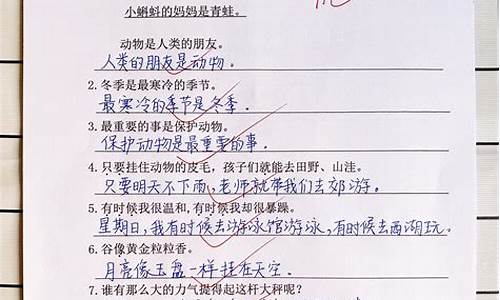 小蝌蚪的妈妈是青蛙。
动物是人类的朋友。
人类的朋友是动物。
2.冬季是最寒冷的季节。
最寒冷的季节是冬季.
3.最重要的事是保护动物。
保护动物是最重要的事.
4.只要挂住动物的皮毛，孩子们就能去田野、山洼。
只要明天不下雨,老师就带我们去郊游。
5.有时候我很温和,有时候我却很暴躁。
星期日,我有时候去游泳馆游泳,有时候去西湖玩。
6.谷像黄金粒粒香。
月亮像玉盘一样挂在天空.
7.谁有那么大的力气提得起这杆大秤呢?